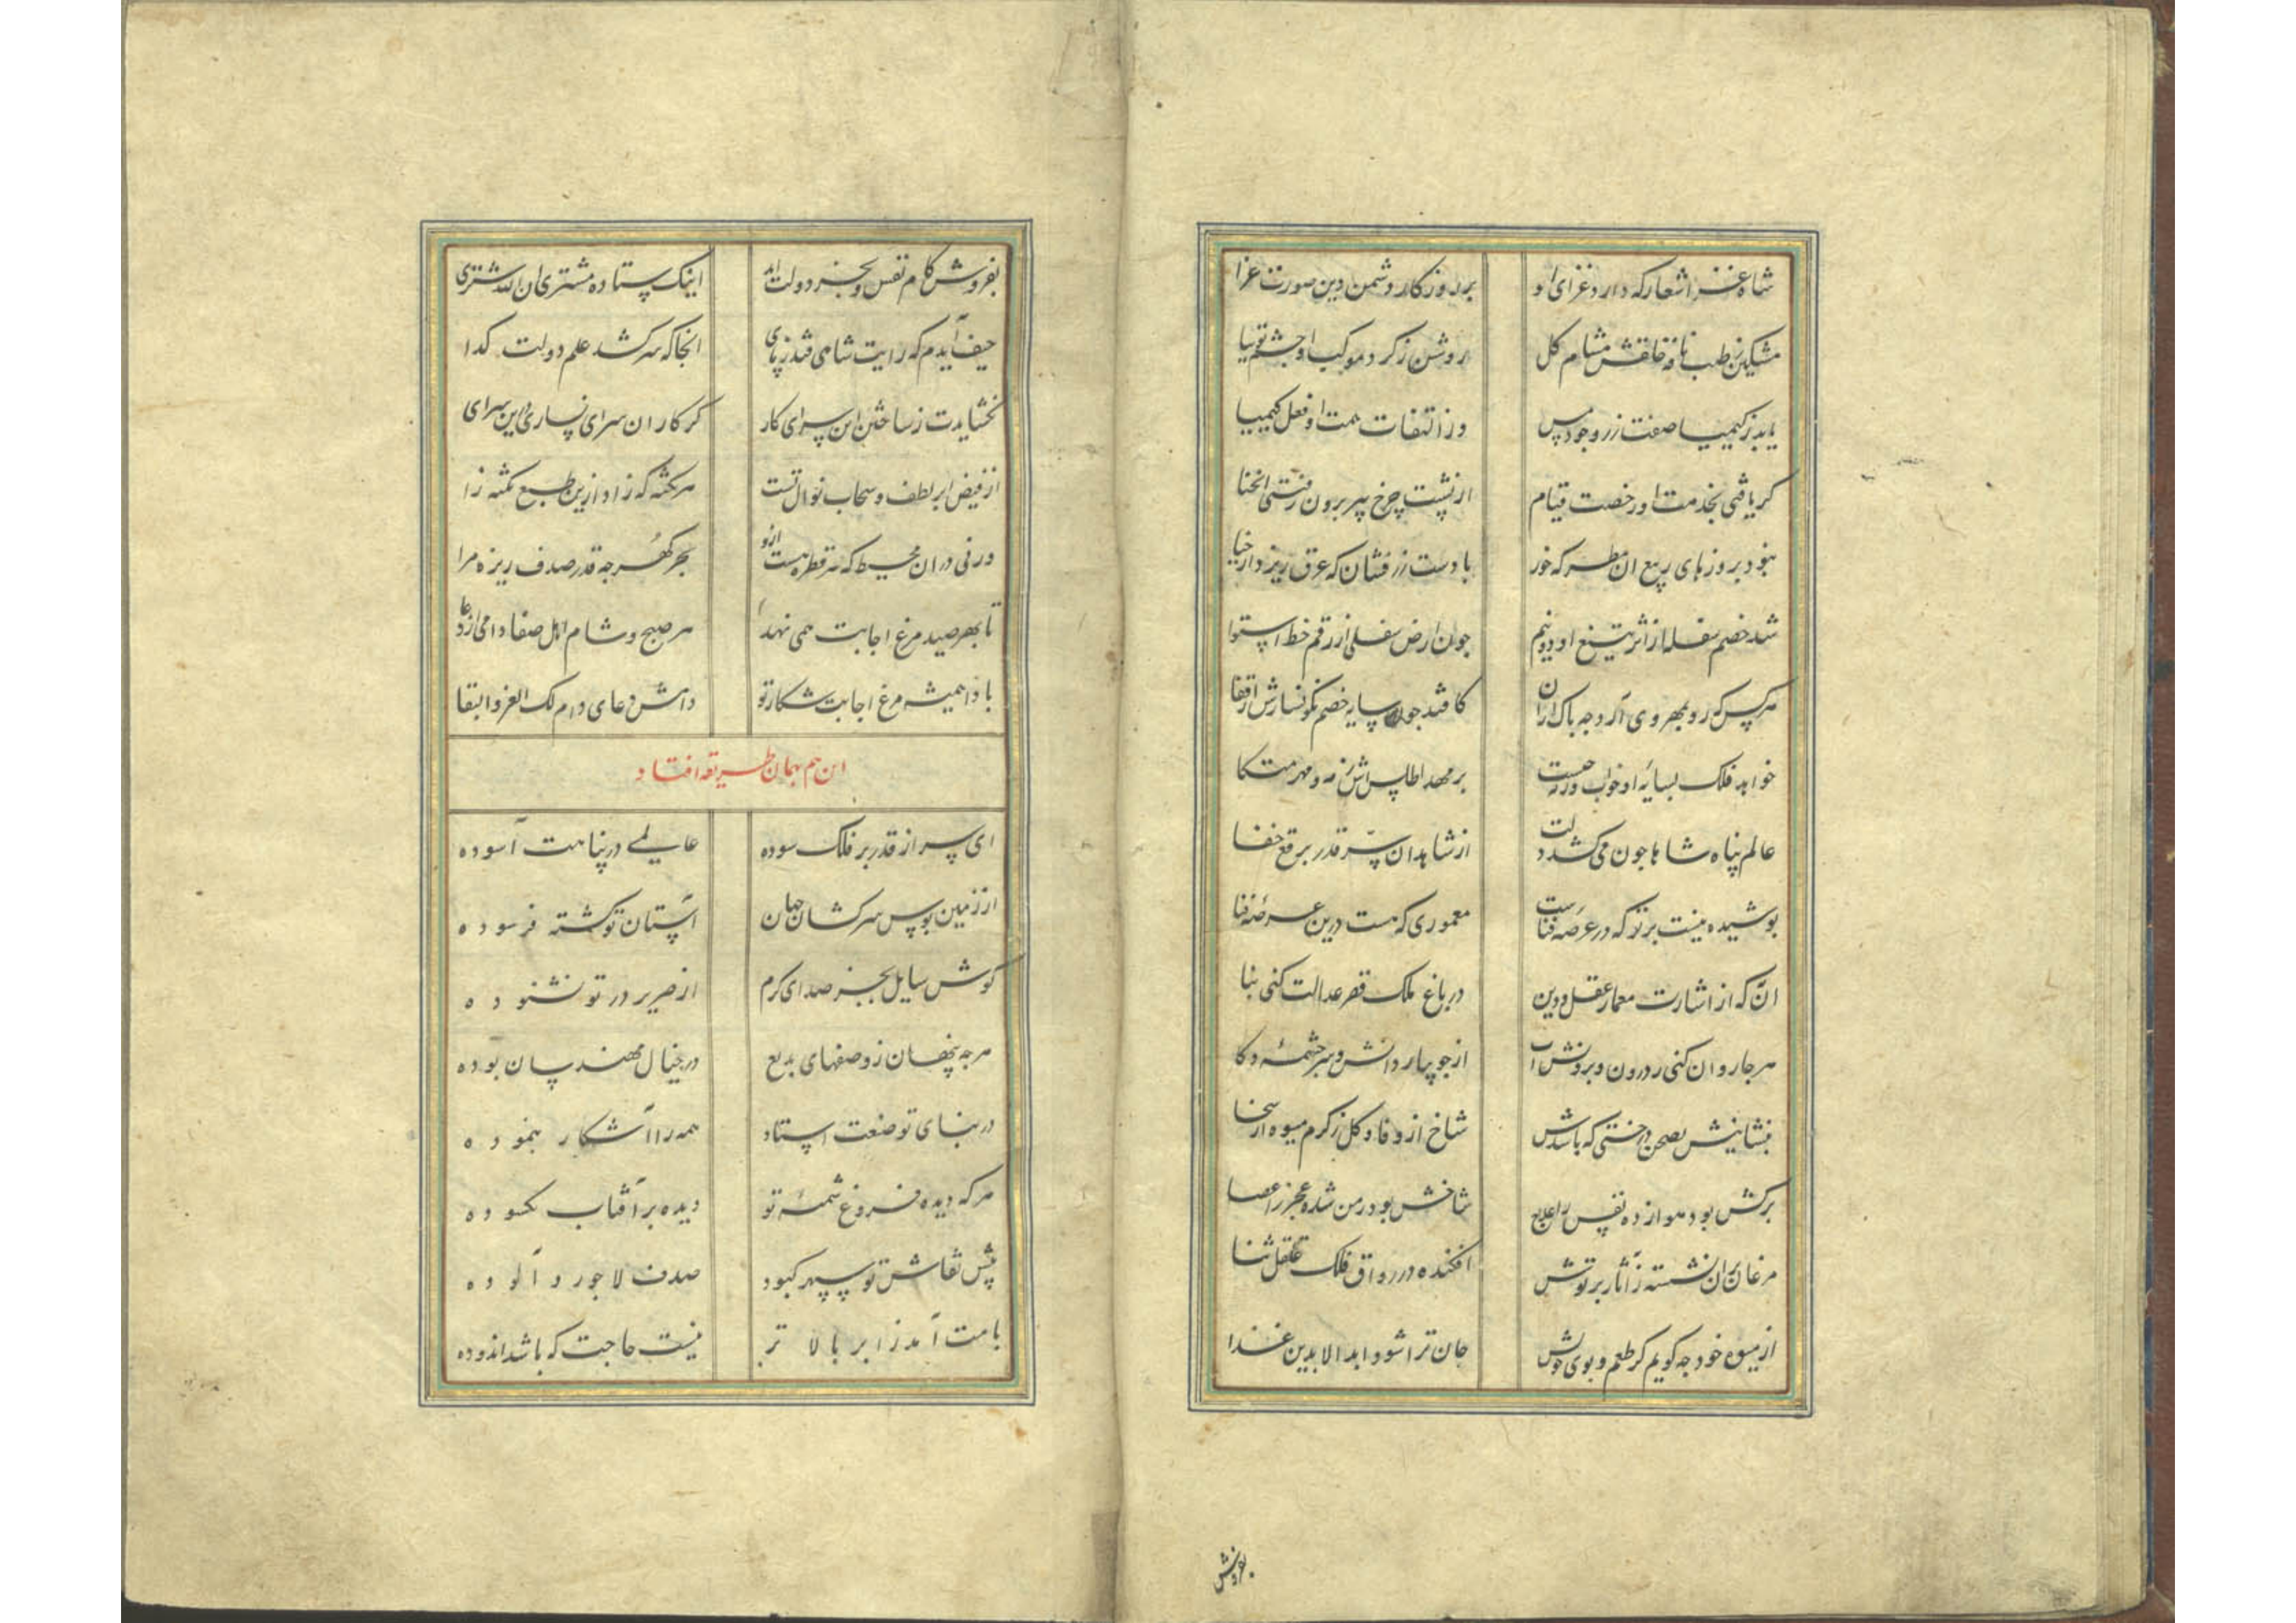 شاه غزا شعار که دارد غزای او
بر روزکار دشمن دین صورت عزا
مشکین ز طیب نافه خلقش مشام کل
روشن ز کرد موکب او چشم توتیا
یابد ز کیمیا صفت زر وجود مس
وز التفات همت او فعل کیمیا
کر یافتی بخدمت او رخصت قیام
از پشت چرخ پیر برون رفتی انحنا
نبود بروزهای ربیع ان مطر که خور
با دست زرفشان که عرق ریزد از حیا
شد خصم سفله از اثر تیغ او دو نیم
جون ارض سفلی از رقم خط استوا
هر کس که رو بهر وی آرد جه باک ازان
کافتد جو سایه خصم نکونسارش از قفا
خواهد فلک بسایه او خواب
بر مهد اطلس مه و مهر متکا
عالم پناه شاها جون می کشد دلت
از شاهدان سر قدر برقع خفا
پوشیده نیست بر تو که در عرصه فناست
معموری که هست درین عرصه فنا
ان به که از اشارت معمار عقل و دین
در باغ ملک قصر عدالت کنی بنا
هر جا روان کنی ز درون و برونش آب
از جویبار دانش و سرچشمه دکا
بنشانیش بصحن درختی که باشدش
شاخ از وفا و کل ز کرم میوه از سخا
برکش بود هوا زده نفس را علاج
شاخش بود رمن شده عجز را عصا
مرغان بران نشسته ز آثار بر توش
افکنده در رواق فلک غلغل ثنا
از میوه خود جه کویم کز طعم و بوی خوش
جان ترا شود ابد الابدین غذا
بفروش
بفروش کام نفس و بخر دولت ابد
اینک ستاده مشتری ان الله اشتری
حیف آیدم که رایت شاهی فتد ز پای
انجا که سر کشد علم دولت کدا
نخشایدت ز ساختن این سرای کار
کر کار ان سرای نسازی درین سرای
از فیض ابر لطف و سحاب نوال تست
هر نکته که زاد ازین طبع نکته زا
ورنی دران محیط که هر قطره هست ازو
بحر کهر جه قدر صدف ریزه مرا
تا بهر صید مرغ اجابت همی نهد
هر صبح و شام اهل صفا دامی از دعا
بادا همیشه مرغ اجابت شکار تو
دامش دعای دام لک العز و البقا
این هم بهمان طریقه افتاد
ای سر از قدر بر فلک سوده
عالمی در پناهت آسوده
از زمین بوس سرکشان جهان
آستان تو کشته فرسوده
کوش سایل بجز صدای کرم
از صریر در تو نشنوده
هر جه پنهان ز وصفهای بدیع
در خیال مهندسان بوده
در بنای تو صنعت استاد
همه را آشکار بنموده
هر که دیده فروغ شمسه تو
دیده بر آفتاب نکشوده
پیش نقاش تو سپهر کبود
صدف لاجورد آلوده
بامت آمد ز ابر بالا تر
نیست حاجت که باشد اندوده